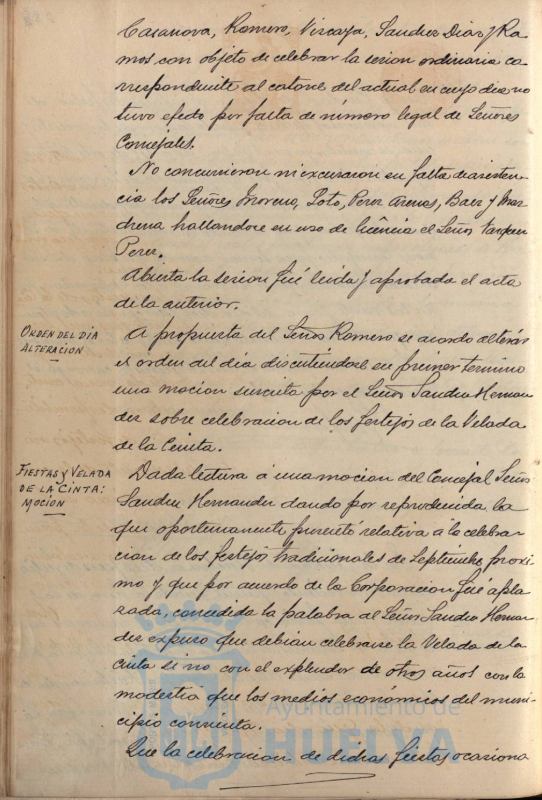 Casanova, Romero, Vizcaya, Sanchez Diaz y Ra
mos, con objeto de celebrar la sesion ordinaria co
rrespondiente al catorce del actual en cuyo dia no
tuvo efecto por falta de número legal de Señores
Concejales.
No concurrieron ni excusaron su falta de asisten
cia los Señores Moreno, Soto, Perez Arenas, Baez y Mar
chena hallandose en uso de licencia el Señor
Perez.
Abierta la sesion fué leida y aprobada el acta
de la anterior.
ORDEN DEL DIA
ALTERACION
A propuesta del Señor Romero se acordo alterár
el orden del dia discutiendose en primer termino
una mocion suscrita por el Señor Sanchez Hernan
dez sobre celebracion de los festejos de la Velada
de la Cinta.
FIESTAS y VELADA
DE LA CINTA:
MOCION
Dada lectura á una mocion del Concejal Señor
Sanchez Hernandez dando por reproducida la
que oportunamente presentó relativa á la celebra
cion de los festejos tradicionales de Septiembre proxi
mo y que por acuerdo de la Corporacion fué apla
zada, concedida la palabra al Señor Sanchez Hernan
dez expuso que debian celebrarse la Velada de la
Cinta si no con el explendor de otros años con la
modestia que los medios económicos del muni
cipio consienta.
Que la celebracion de dichas fiestas ocasiona
Ayuntamiento de
HUELVA